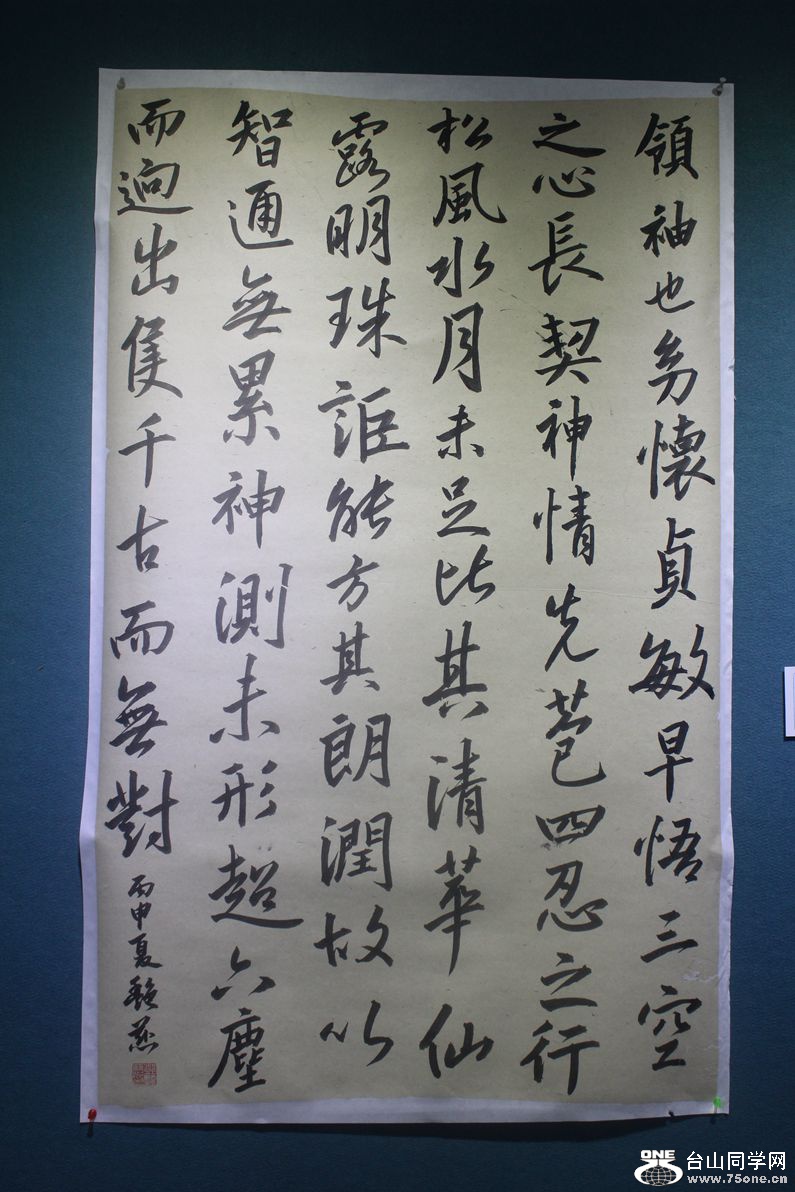 領袖也㓜懷貞敏早悟三空
之心長契神情先苞四忍之行
松風水月未足比其清華仙
露明珠詎能方其朗潤故以
智通無累神測未形超六塵
而迥出隻千古而無對
丙申夏
ONE
台山同学网
www.75one.cn